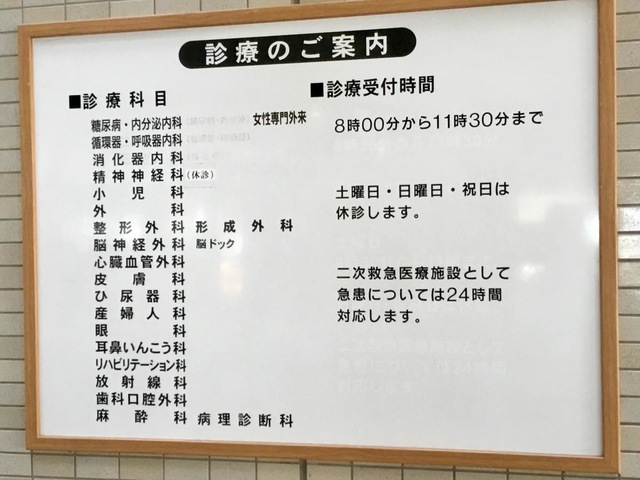 診療のご案内
■診療科目
糖尿病・内分泌内科 女性専門外来
循環器・呼吸器内科
消化器内科
精神神経科(休診)
小児科
外科
整形外科 形成外科
脳神経外科 脳ドック
心臓血管外科
皮膚科
ひ尿器科
産婦人科
眼科
耳鼻いんこう科
リハビリテーション科
放射線科
歯科口腔外科
麻酔科 病理診断科
■診療受付時間
8時00分から11時30分まで
土曜日・日曜日・祝日は
休診します。
二次救急医療施設として
急患については24時間
対応します。